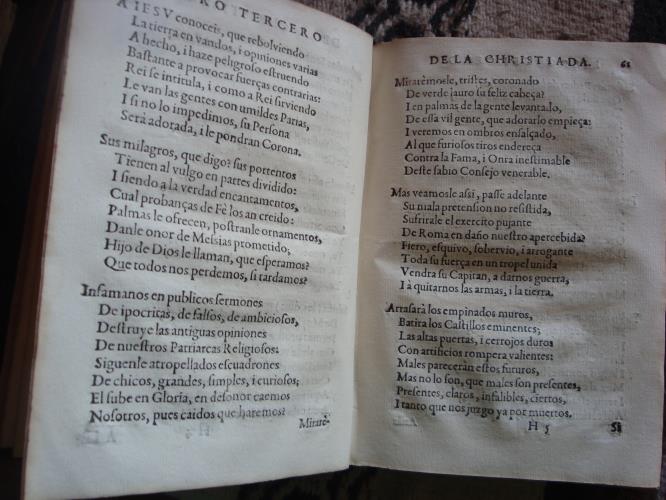 RO TERCERO
A IESV conoceis, que rebolviendo
La tierra en vandos, i opiniones varias
A hecho, i haze peligroso estruendo
Bastante a provocar fuerças contrarias:
Rei se intitula, i como a Rei sirviendo
Le van las gentes con umildes Parias,
I si no lo impedimos, su Persona
Será adorada, i le pondran Corona.
Sus milagros, que digo? sus portentos
Tienen al vulgo en partes dividido:
I siendo a la verdad encantamentos,
Cual probanças de Fè los an creido:
Palmas le ofrecen, postranle ornamentos,
Danle onor de Messias prometido;
Hijo de Dios le llaman, que esperamos?
Que todos nos perdemos, si tardamos?
Infamanos en publicos sermones
De ipocritas, de falsos, de ambiciosos,
Destruye las antiguas opiniones
De nuestros Patriarcas Religiosos:
Siguenle atropellados escuadrones
De chicos, grandes, simples, i curiosos;
El sube en Gloria, en desonor caemos
Nosotros, pues caidos que haremos?
Mirarè-
DE LA CHRISTIADA. 61
Mirarèmosle, tristes, coronado
De verde lauro su feliz cabeça?
I en palmas de la gente levantado,
De essa vil gente, que adorarlo empieça:
I veremos en ombros ensalçado,
Al que furiosos tiros endereça
Contra la Fama, i Onra inestimable
Deste sabio Consejo venerable.
Mas veamosle assi, passe adelante
Su mala pretension no resistida,
Sufrirale el exercito pujante
De Roma en daño nuestro apercebida?
Fiero, esquivo, sobervio, i arrogante
Toda su fuerça en un tropel unida
Vendra su Capitan, a darnos guerra,
I à quitarnos las armas, i la tierra.
Arrasarà los empinados muros,
Batira los Castillos eminentes;
Las altas puertas, i cerrojos duros
Con artificios rompera valientes:
Males parecerán estos futuros,
Mas no lo son, que males son presentes,
Presentes, claros, infalibles, ciertos,
I tanto que nos juzgo ya por muertos.
H 5
Si